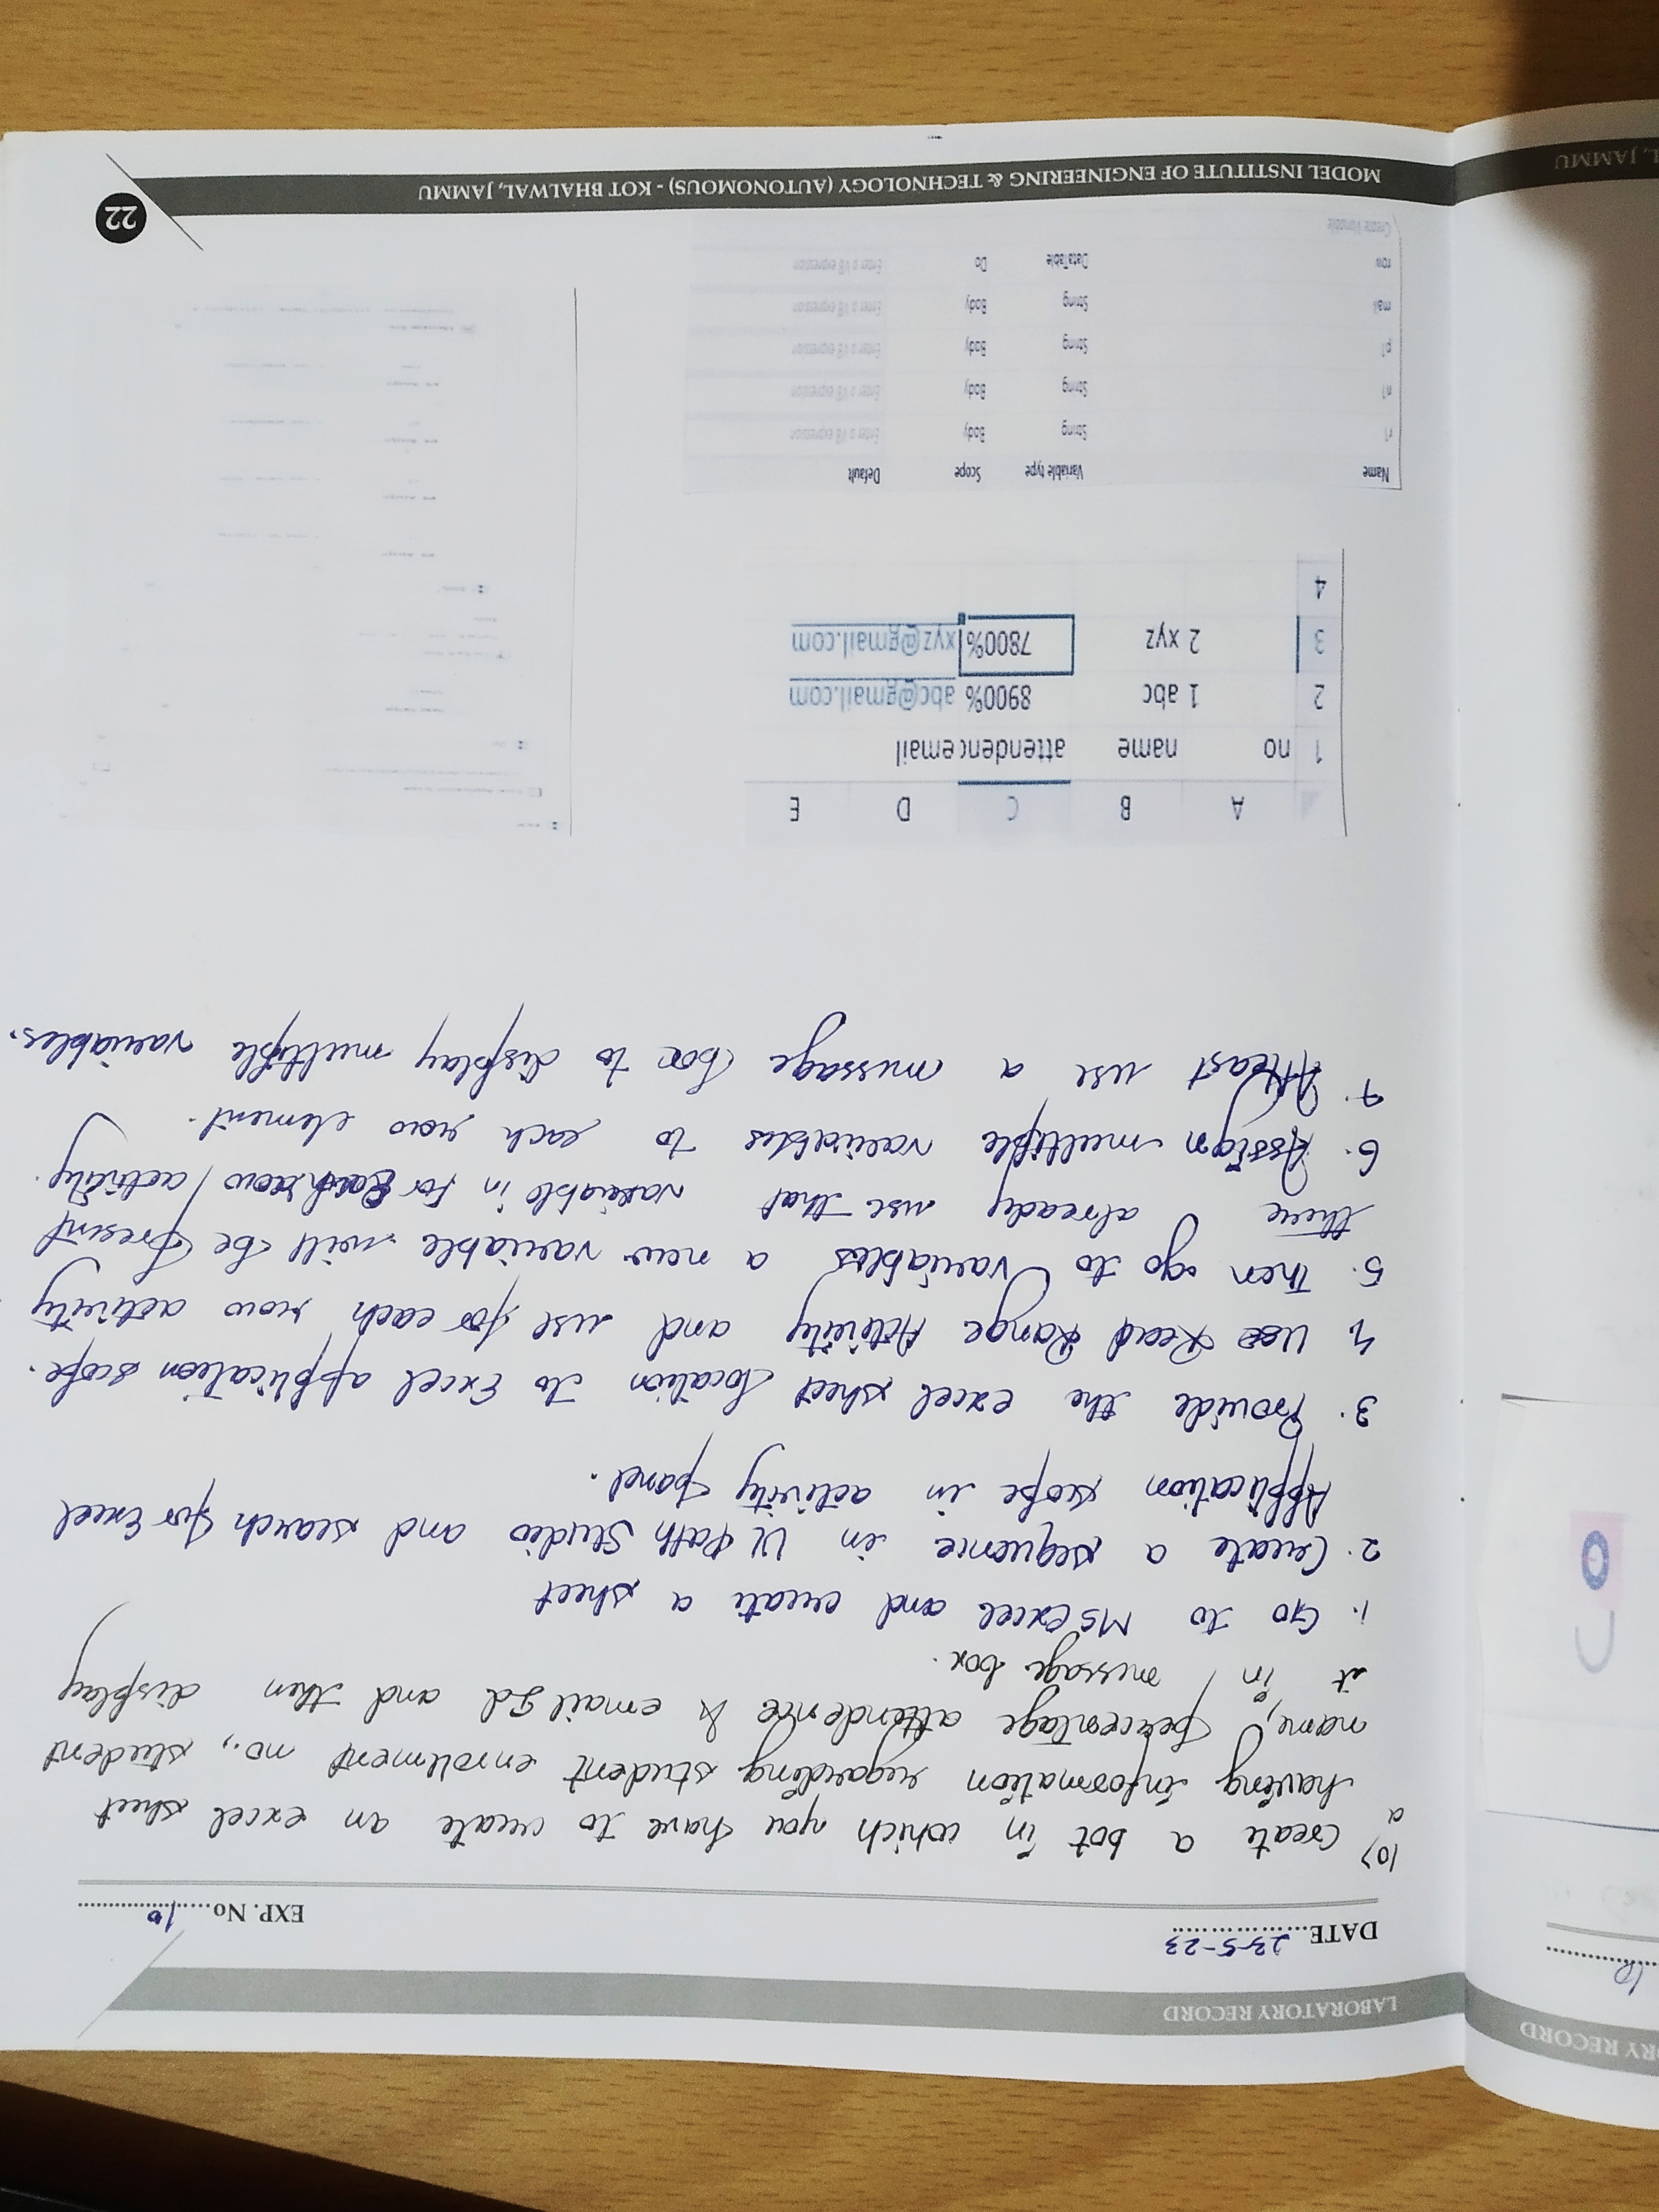 LABORATORY RECORD
DATE 23-5-23 EXP. No. 10
10> Create a bot in which you have to create an excel sheet
a having information regarding student enrollment no., student
name, percentage attendence & email Id and then display
it in message box.
1. Go to MS Excel and create a sheet
2. Create a sequence in UI Path Studio and search for Excel
Application scope in activity panel.
3. Provide the excel sheet location to Excel application scope.
4. Use Read Range Activity and use for each row activity
5. Then go to variables a new variable will be present
there already use that variable in for Each row activity.
6. Assign multiple variables to each row element.
7. Atleast use a message box to display multiple variables.
A B C D E
1 no name attendenc email
2 1 abc 8900% abc@gmail.com
3 2 xyz 7800% xyz@gmail.com
4
Name Variable type Scope Default
r1 String Body Enter a VB expression
n1 String Body Enter a VB expression
p1 String Body Enter a VB expression
mail String Body Enter a VB expression
row DataTable Do Enter a VB expression
Create Variable
MODEL INSTITUTE OF ENGINEERING & TECHNOLOGY (AUTONOMOUS) - KOT BHALWAL, JAMMU
22
RY RECORD
L, JAMMU